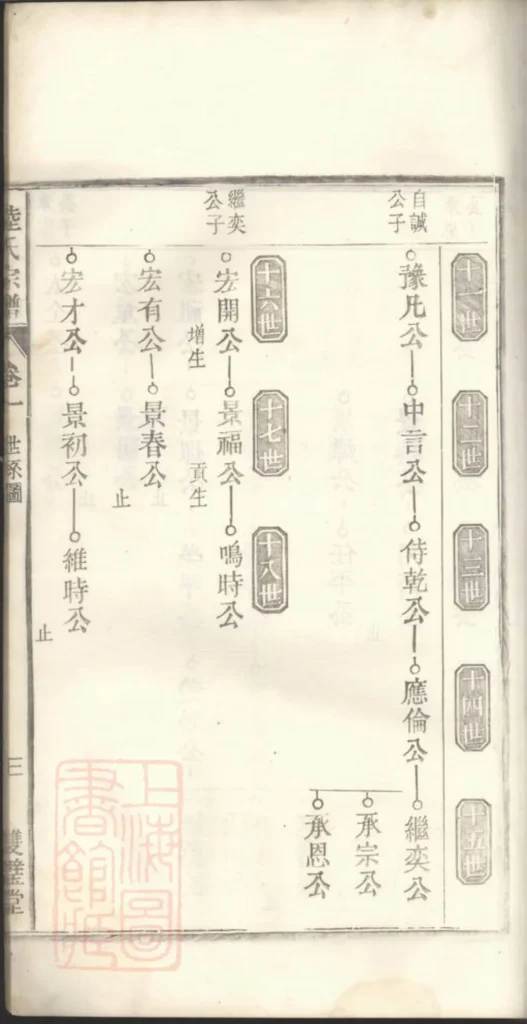 十一世
十二世
十三世
十四世
十五世
自誠公子
豫凡公
中言公
侍乾公
應倫公
繼奕公
承宗公
承恩公
十六世
十七世
十八世
繼奕公子
宏開公
景福公
鳴時公
增生
貢生
宏有公
景春公
止
宏才公
景初公
維時公
止
陸氏宗譜
卷一
世系圖
三
雙璧堂
上海圖書館藏